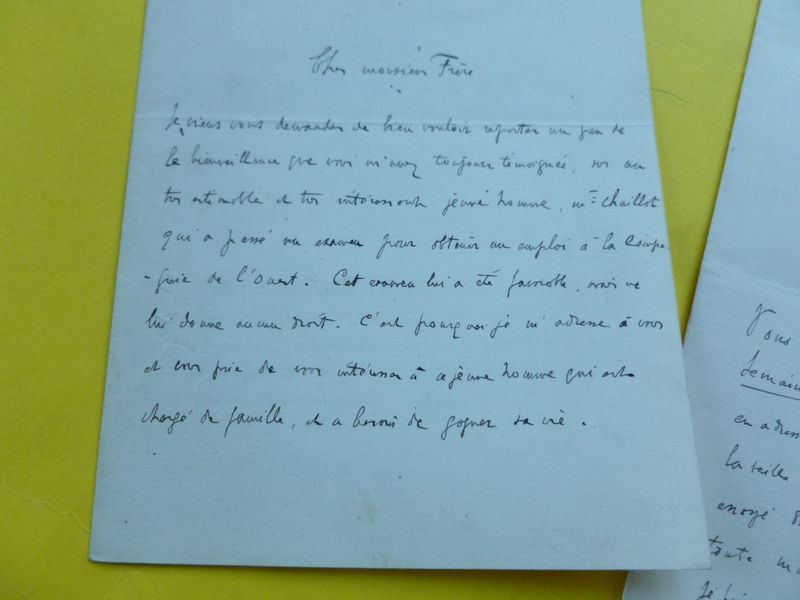 Cher monsieur Frère
Je viens vous demander de bien vouloir reporter un peu de
la bienveillance que vous m'avez toujours témoignée, sur un
très estimable et très intéressant jeune homme, mr Chaillot
qui a passé un examen pour obtenir un emploi à la Compa-
-gnie de l'Ouest. Cet examen lui a été favorable, mais ne
lui donne aucun droit. C'est pourquoi je m'adresse à vous
et vous prie de vous intéresser à ce jeune homme qui est
chargé de famille, et a besoin de gagner sa vie.
Vous
demain
en adress
la veille
envoyé
toute